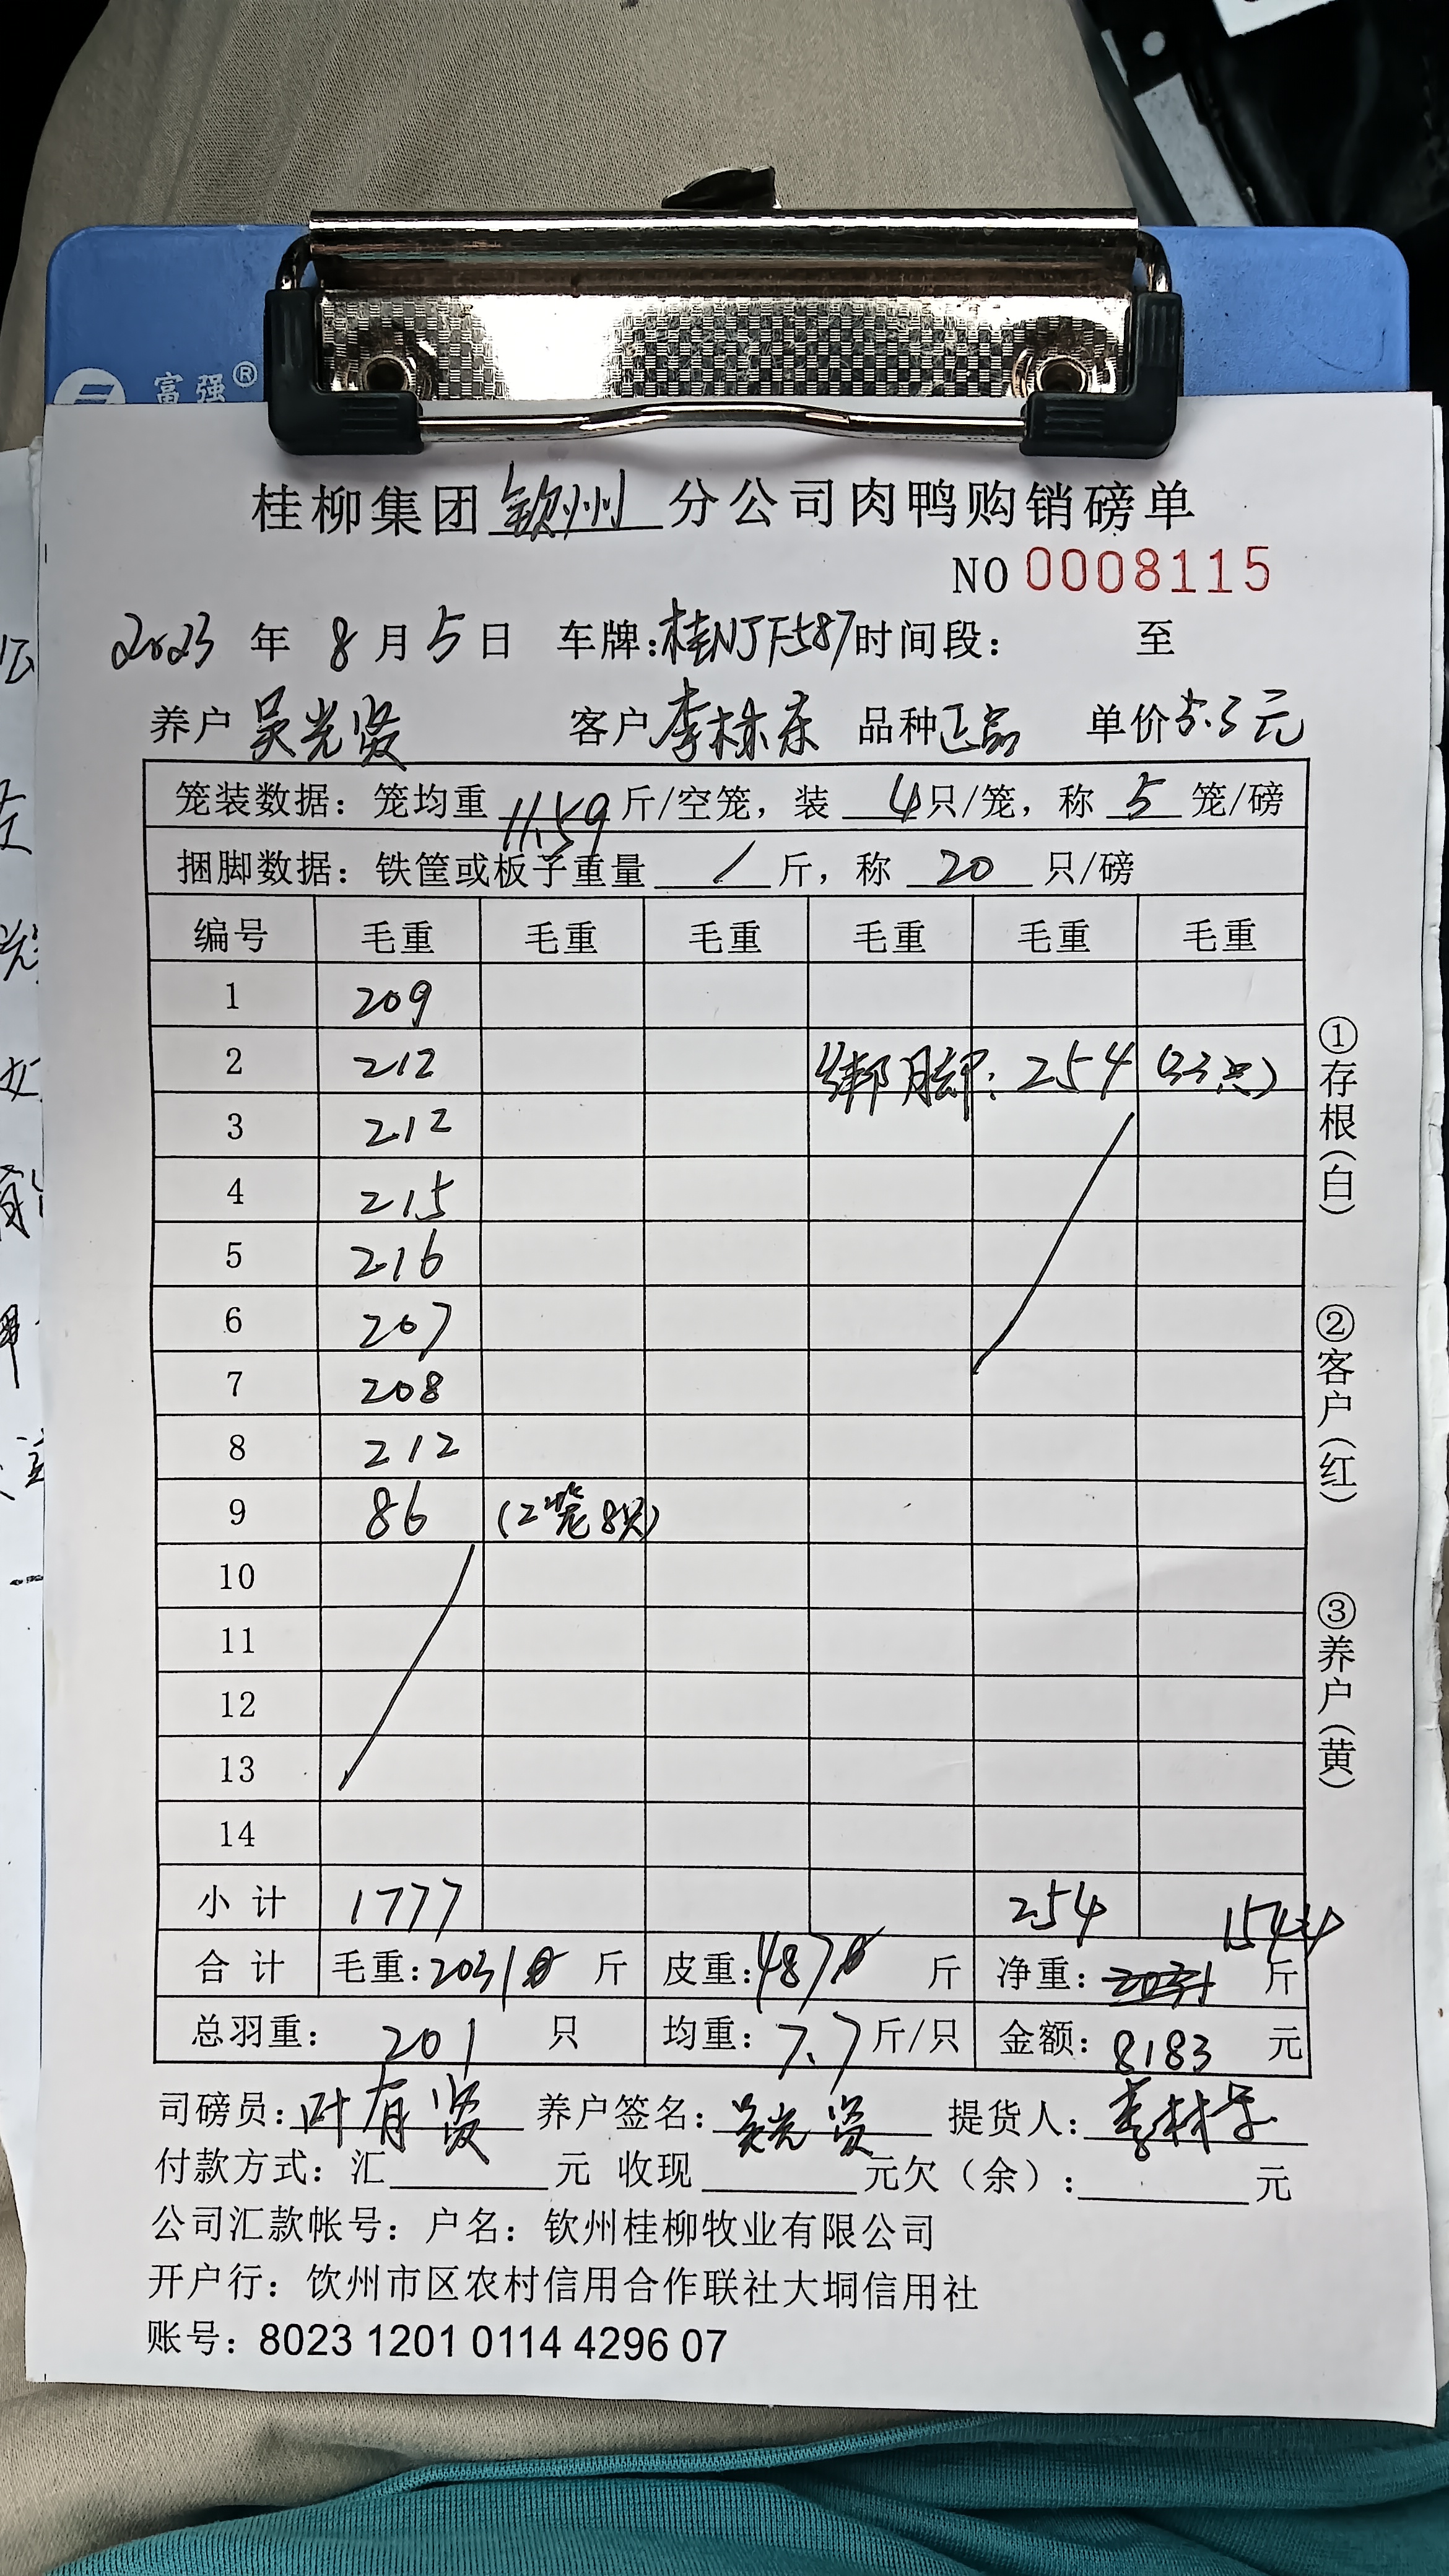 富强®
桂柳集团 钦州 分公司肉鸭购销磅单
NO 0008115
2023 年 8 月 5 日 车牌:桂NJF587 时间段: 至
养户 吴光贤 客户 李林东 品种 正品 单价 5.3元
笼装数据: 笼均重 11.59 斤/空笼, 装 4 只/笼, 称 5 笼/磅
捆脚数据: 铁筐或板子重量 / 斤, 称 20 只/磅
编号 毛重 毛重 毛重 毛重 毛重 毛重
1 209
2 212 绑脚: 254 (33只)
3 212
4 215
5 216
6 207
7 208
8 212
9 86 (2笼8只)
10
11
12
13
14
小计 1777 254
1544
合计 毛重:2031 斤 皮重:487 斤 净重: 2031 斤
总羽重: 201 只 均重: 7.7 斤/只 金额: 8183 元
司磅员: 叶有贤 养户签名: 吴光贤 提货人: 李林东
付款方式: 汇 元 收现 元欠(余): 元
公司汇款帐号: 户名: 钦州桂柳牧业有限公司
开户行: 钦州市区农村信用合作联社大垌信用社
账号: 8023 1201 0114 4296 07
①存根(白)
②客户(红)
③养户(黄)